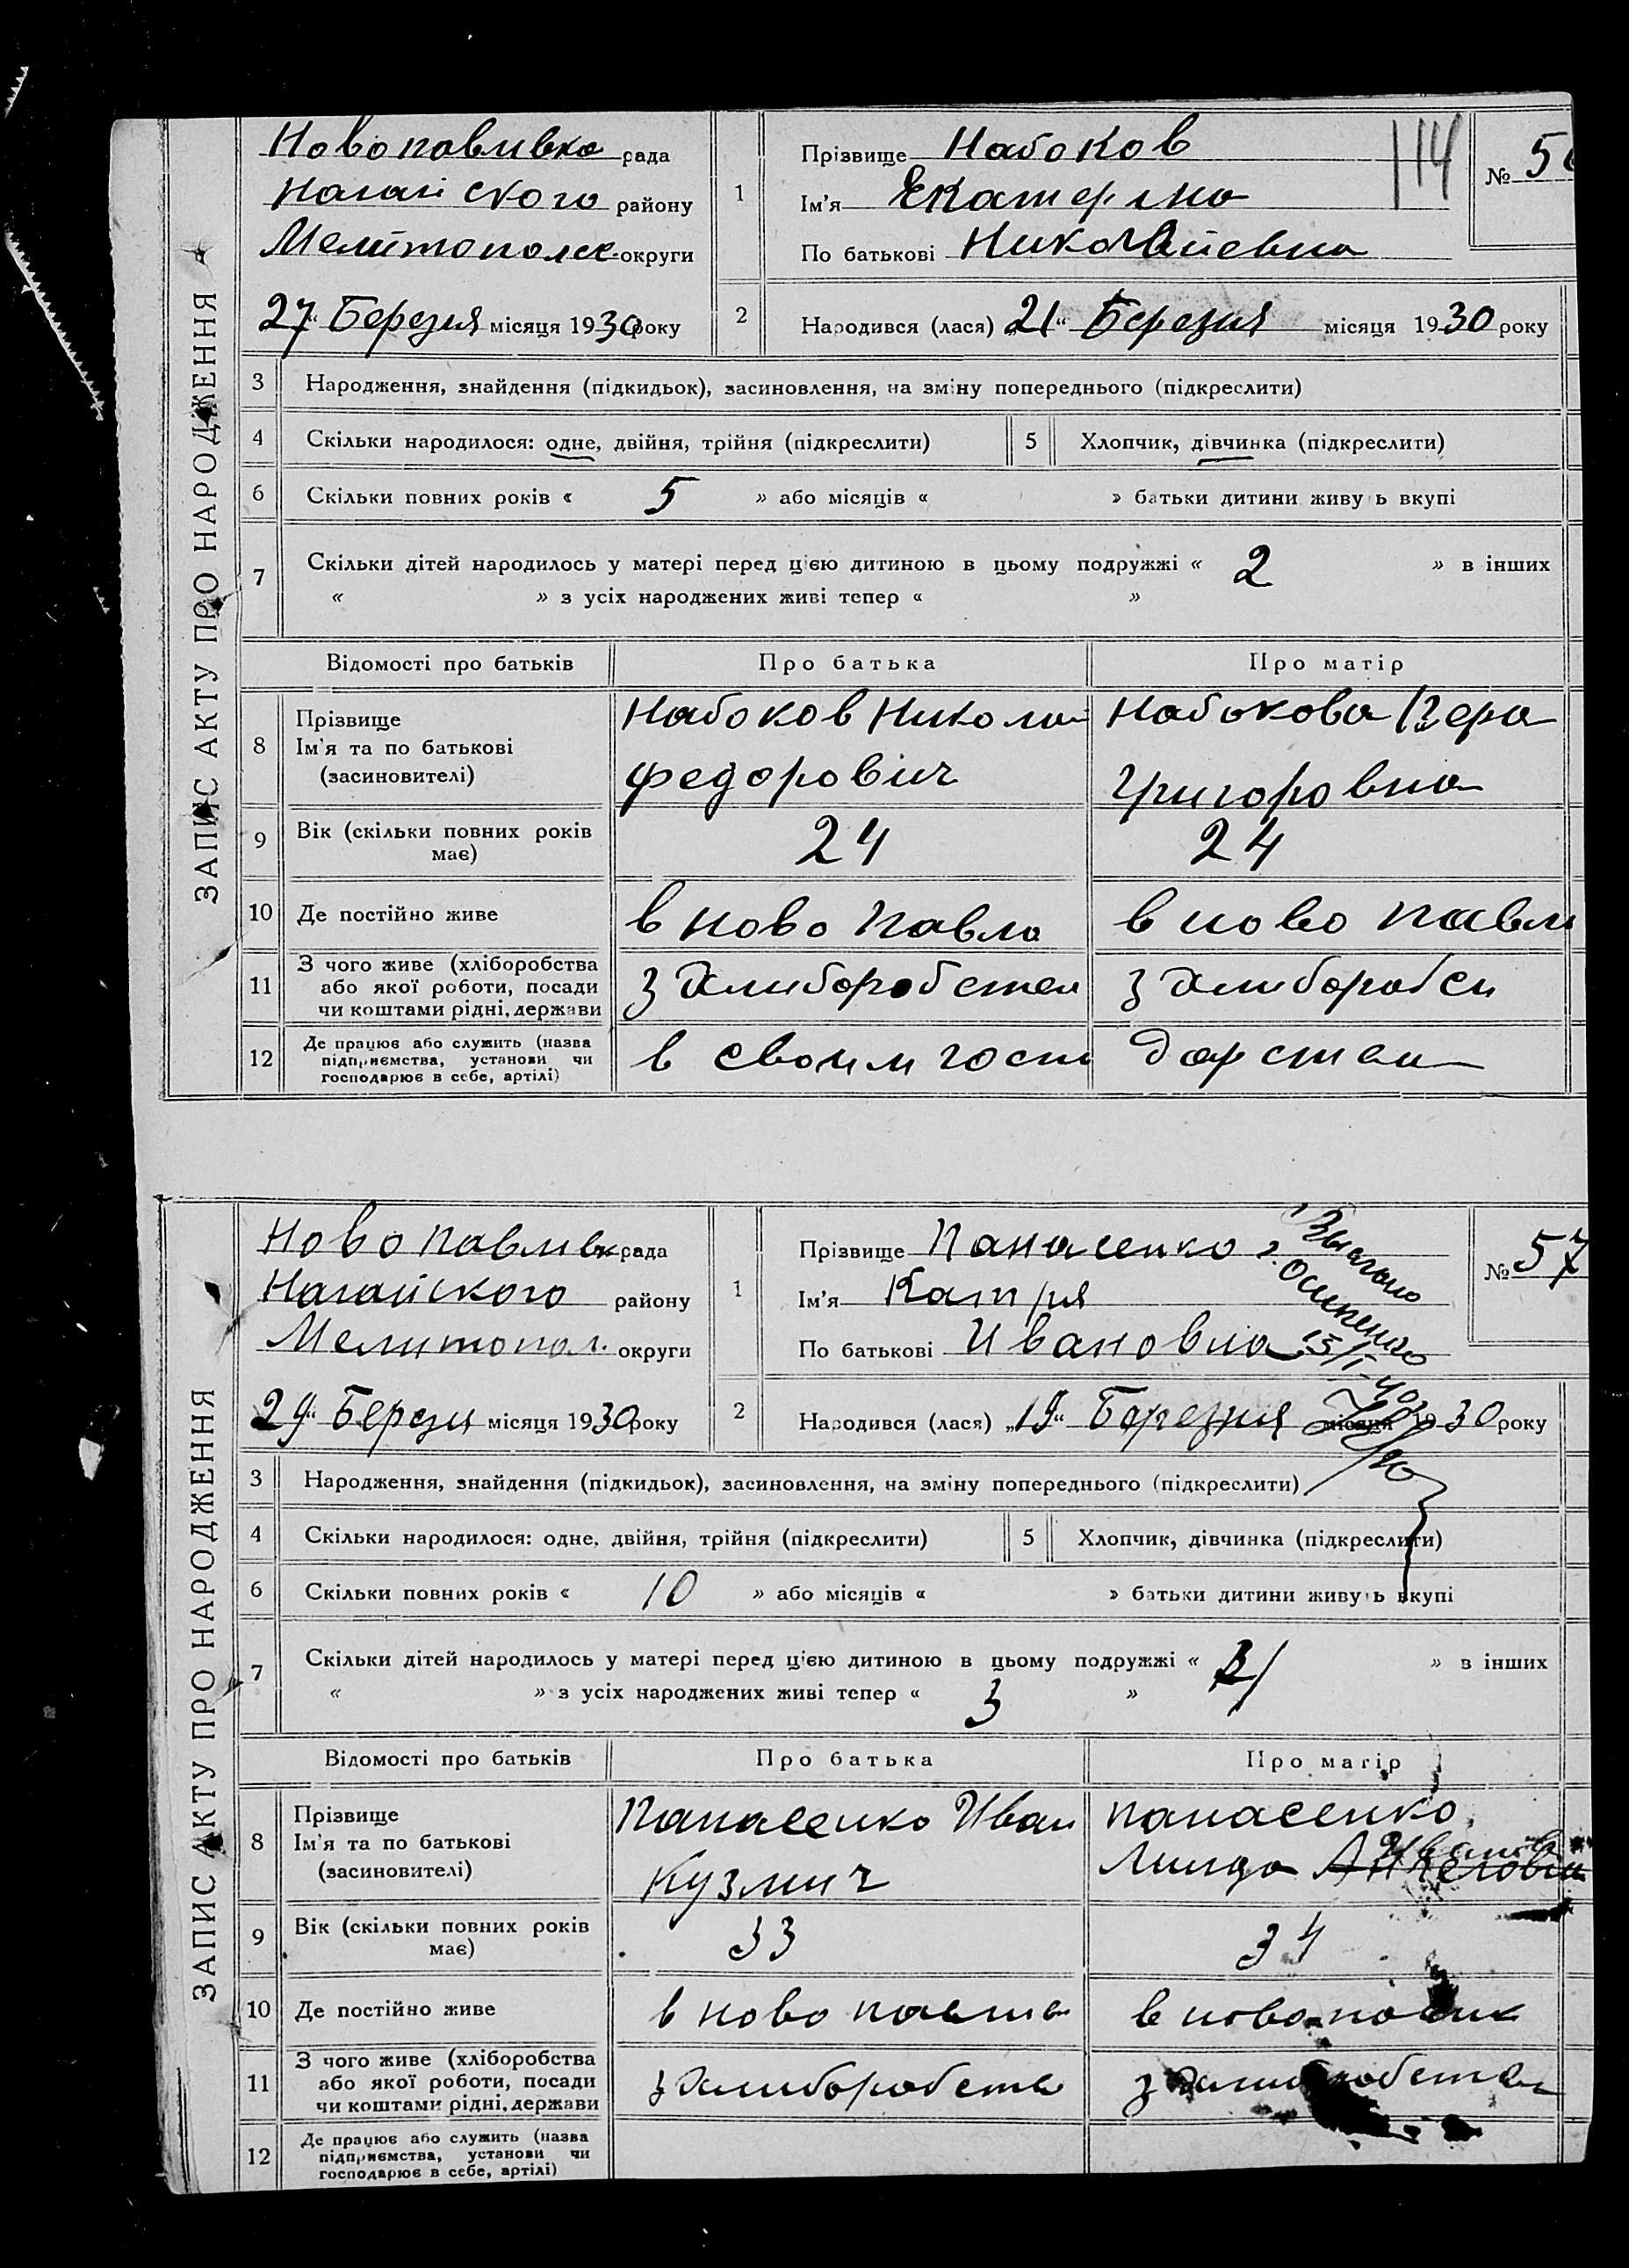 ЗАПИС АКТУ ПРО НАРОДЖЕННЯ
Новопавливка рада
Нагайского району
Мелитополск. округи
27 " Березня місяця 1930 року
1
Прізвище Набоков
Ім'я Екатерина
По батькові Николаиевна
114
№ 5
2
Народився (лася) „21" Березня місяця 1930 року
3 Народження, знайдення (підкидьок), засиновлення, на зміну попереднього (підкреслити)
4 Скільки народилося: одне, двійня, трійня (підкреслити) 5 Хлопчик, дівчинка (підкреслити)
6 Скільки повних років « 5 » або місяців « » батьки дитини живу ь вкупі
7 Скільки дітей народилось у матері перед цією дитиною в цьому подружжі « 2 » в інших
« » з усіх народжених живі тепер « »
Відомості про батьків Про батька Про матір
8 Прізвище
Ім'я та по батькові
(засиновителі)
Набоков Николай
Федорович
Набокова Вера
Григоровна
9 Вік (скільки повних років
має)
24 24
10 Де постійно живе в ново Павла в ново павл
11 З чого живе (хліборобства
або якої роботи, посади
чи коштами рідні, держави
з хлиборобства з хлиборобси
12 Де працює або служить (назва
підприємства, установи чи
господарює в себе, артілі)
в своим госп дарстви
ЗАПИС АКТУ ПРО НАРОДЖЕННЯ
Ново павливк рада
Нагайского району
Мелитопол. округи
29" Березн місяця 1930 року
1
Прізвище Панасенко
Ім'я Катря
По батькові Ивановна
г. Осипенко
13/I-40
№ 57
2
Народився (лася) „19" Березня місяця 1930 року
3 Народження, знайдення (підкидьок), засиновлення, на зміну попереднього (підкреслити)
4 Скільки народилося: одне, двійня, трійня (підкреслити) 5 Хлопчик, дівчинка (підкреслити)
6 Скільки повних років « 10 » або місяців « » батьки дитини живу ь вкупі
7 Скільки дітей народилось у матері перед цією дитиною в цьому подружжі « » в інших
« » з усіх народжених живі тепер « 3 »
Відомості про батьків Про батька Про матір
8 Прізвище
Ім'я та по батькові
(засиновителі)
Панасенко Иван
Кузмич
панасенко
9 Вік (скільки повних років
має)
33 34
10 Де постійно живе в ново павлив в ново
11 З чого живе (хліборобства
або якої роботи, посади
чи коштами рідні, держави
з хлиборобства з хлиборобства
12 Де працює або служить (назва
підприємства, установи чи
господарює в себе, артілі)